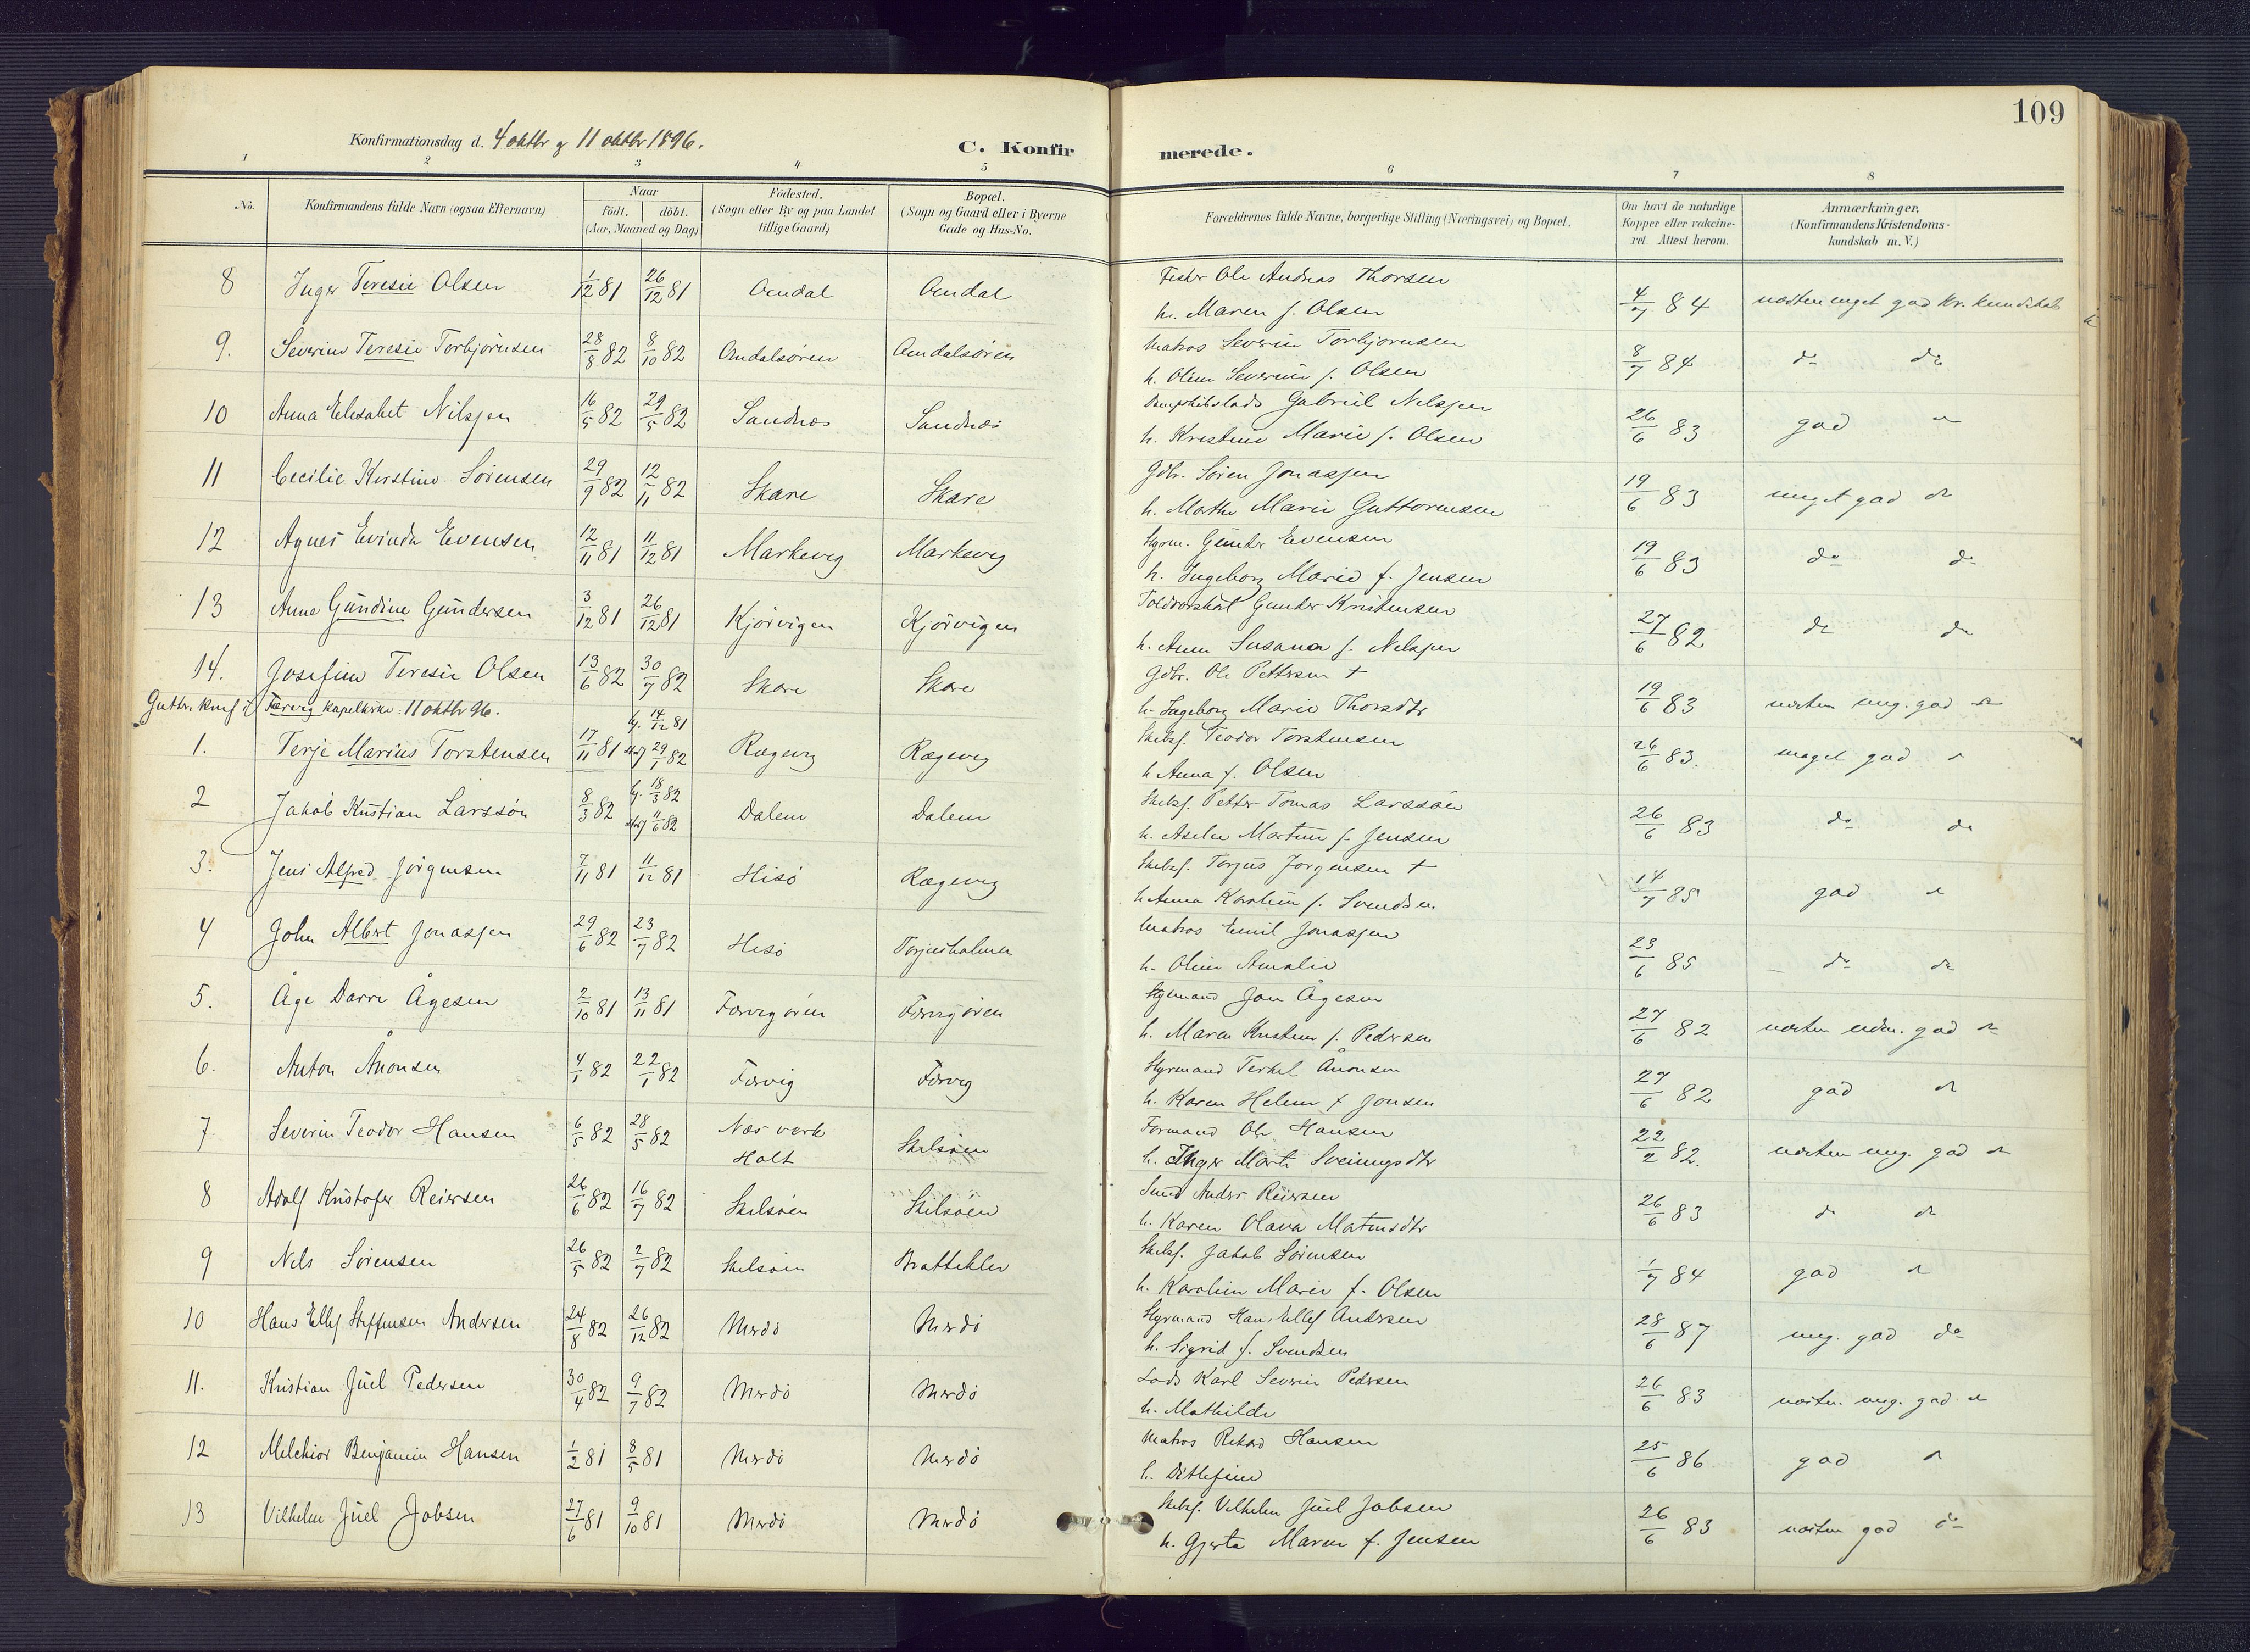 109
Konfirmationsdag d. 4 oktbr og 11 oktbr 1896.
C. Konfirmerede.
1 2 3 4 5 6 7 8
No. Konfirmandens fulde Navn (ogsaa Efternavn) Naar født. døbt. (Aar, Maaned og Dag) Födested. (Sogn eller By og paa Landet tillige Gaard) Bopæl. (Sogn og Gaard eller i Byerne Gade og Hus-No. Forældrenes fulde Navne, borgerlige Stilling (Næringsvei) og Bopæl. Om havt de naturlige Kopper eller vakcineret. Attest herom. Anmærkninger. (Konfirmandens Kristendomskundskab m. V.)
8 Inger Teresie Olsen 1/12 81 26/12 81 Omdal Omdal Fisker Ole Andreas Thorsen
h. Maren f. Olsen 4/7 84 næsten meget god Kr. kundskab
9. Severine Teresie Torbjörnsen 28/8 82 8/10 82 Omdalsøren Omdalsøren Matros Severin Torbjörnsen
h. Oline Severine f. Olsen 8/7 84 do do
10 Anna Elisabet Nilssen 16/5 82 29/5 82 Sandnæs Sandnæs Dampskibslods Gabriel Nilssen
h. Kristine Marie f. Olsen 26/6 83 god do
11 Cecilie Kirstine Sörensen 29/9 82 12/11 82 Skare Skare Gdbr. Sören Jonassen
h. Marthe Marie Guttormsen 19/6 83 meget god do
12 Agnes Evinda Evensen 12/11 81 11/12 81 Markevig Markevig Styrm. Gunder Evensen
h. Ingeborg Marie f. Jensen 19/6 83 do do
13 Anne Gundine Gundersen 3/12 81 26/12 81 Kjörvigen Kjörvigen Gunder Kristensen
h. Anne Susanna f. Nilssen 27/6 82 do do
14. Josefine Teresie Olsen 13/6 82 30/7 82 Skare Skare Gdbr. Ole Pettersen †
h. Ingeborg Marie Thorsdtr 19/6 83 næsten meg. god do
Gutter. konf i Færvig kapelkirke 11 oktbr 96.
1. Terje Marius Torstensen 17/11 81 hj. 14/12 81 29/1 82 Rægevig Rægevig Skibsf. Teodor Torstensen
h Anna f. Olsen 26/6 83. meget god do
2 Jakob Kristian Larssön 8/3 82 hj. 18/3 82 11/6 82 Dalene Dalene Skibsf. Petter Tomas Larssön
h. Martine f. Jensen 26/6 83 do do
3. Jens Alfred Jörgensen 7/11 81 11/12 81 Hisö Rægevig Skibsf. Torjus Jörgensen †
h Anna Karoline f. Svendsen 14/7 85 god do
4 John Albert Jonassen 29/6 82 23/7 82 Hisö Torjusholmen Matros Emil Jonassen
h. Oline Amalie 23/6 85 do do
5. Åge Dorre Ågesen 2/10 81 13/11 81 Færvigören Færvigören Styrmand Jon Ågesen
h. Maren Kristine f. Pedersen 27/6 82 næsten god do
6. Anton Ånonsen 4/1 82 22/1 82 Færvig Færvig Styrmand Terkel Ånonsen
h. Karen Helene f Jonsen 27/6 82 god do
7. Severin Teodor Hansen 6/5 82 28/5 82 Næs værk Holt Skilsöen Formand Ole Hansen
h. Inger Marte Sveinungsdtr 22/2 82. næsten meg. god do
8 Adolf Kristofer Reiersen 26/6 82 16/7 82 Skilsöen Skilsöen Smed Anders Reiersen
h. Karen Olava Mortensdtr 26/6 83 do do
9 Nils Sörensen 26/5 82 2/7 82 Skilsöen Brattekler Skibsf. Jakob Sörensen
h. Karoline Marie f. Olsen 1/7 84 god do
10 Hans Ellef Steffensen Andersen 24/8 82 26/12 82 Merdö Merdö Styrmand Hans Ellef Andersen
h. Sigrid f. Svendsen 28/6 87 meg. god do
11. Kristian Juel Pedersen 30/4 82 9/7 82 Merdö Merdö Lods Karl Severin Pedersen
h. Mathilde 26/6 83 næsten meg. god do
12 Melchior Benjamin Hansen 1/2 81 8/5 81 Merdö Merdö Matros Rikard Hansen
h. Ditlefine 25/6 86 god do
13 Vilhelm Juel Jobsen 27/6 81 9/10 81 Merdö Merdö Skibsf. Vilhelm Juel Jobsen
h. Gjerta Maren f. Jensen 26/6 83 næsten god do